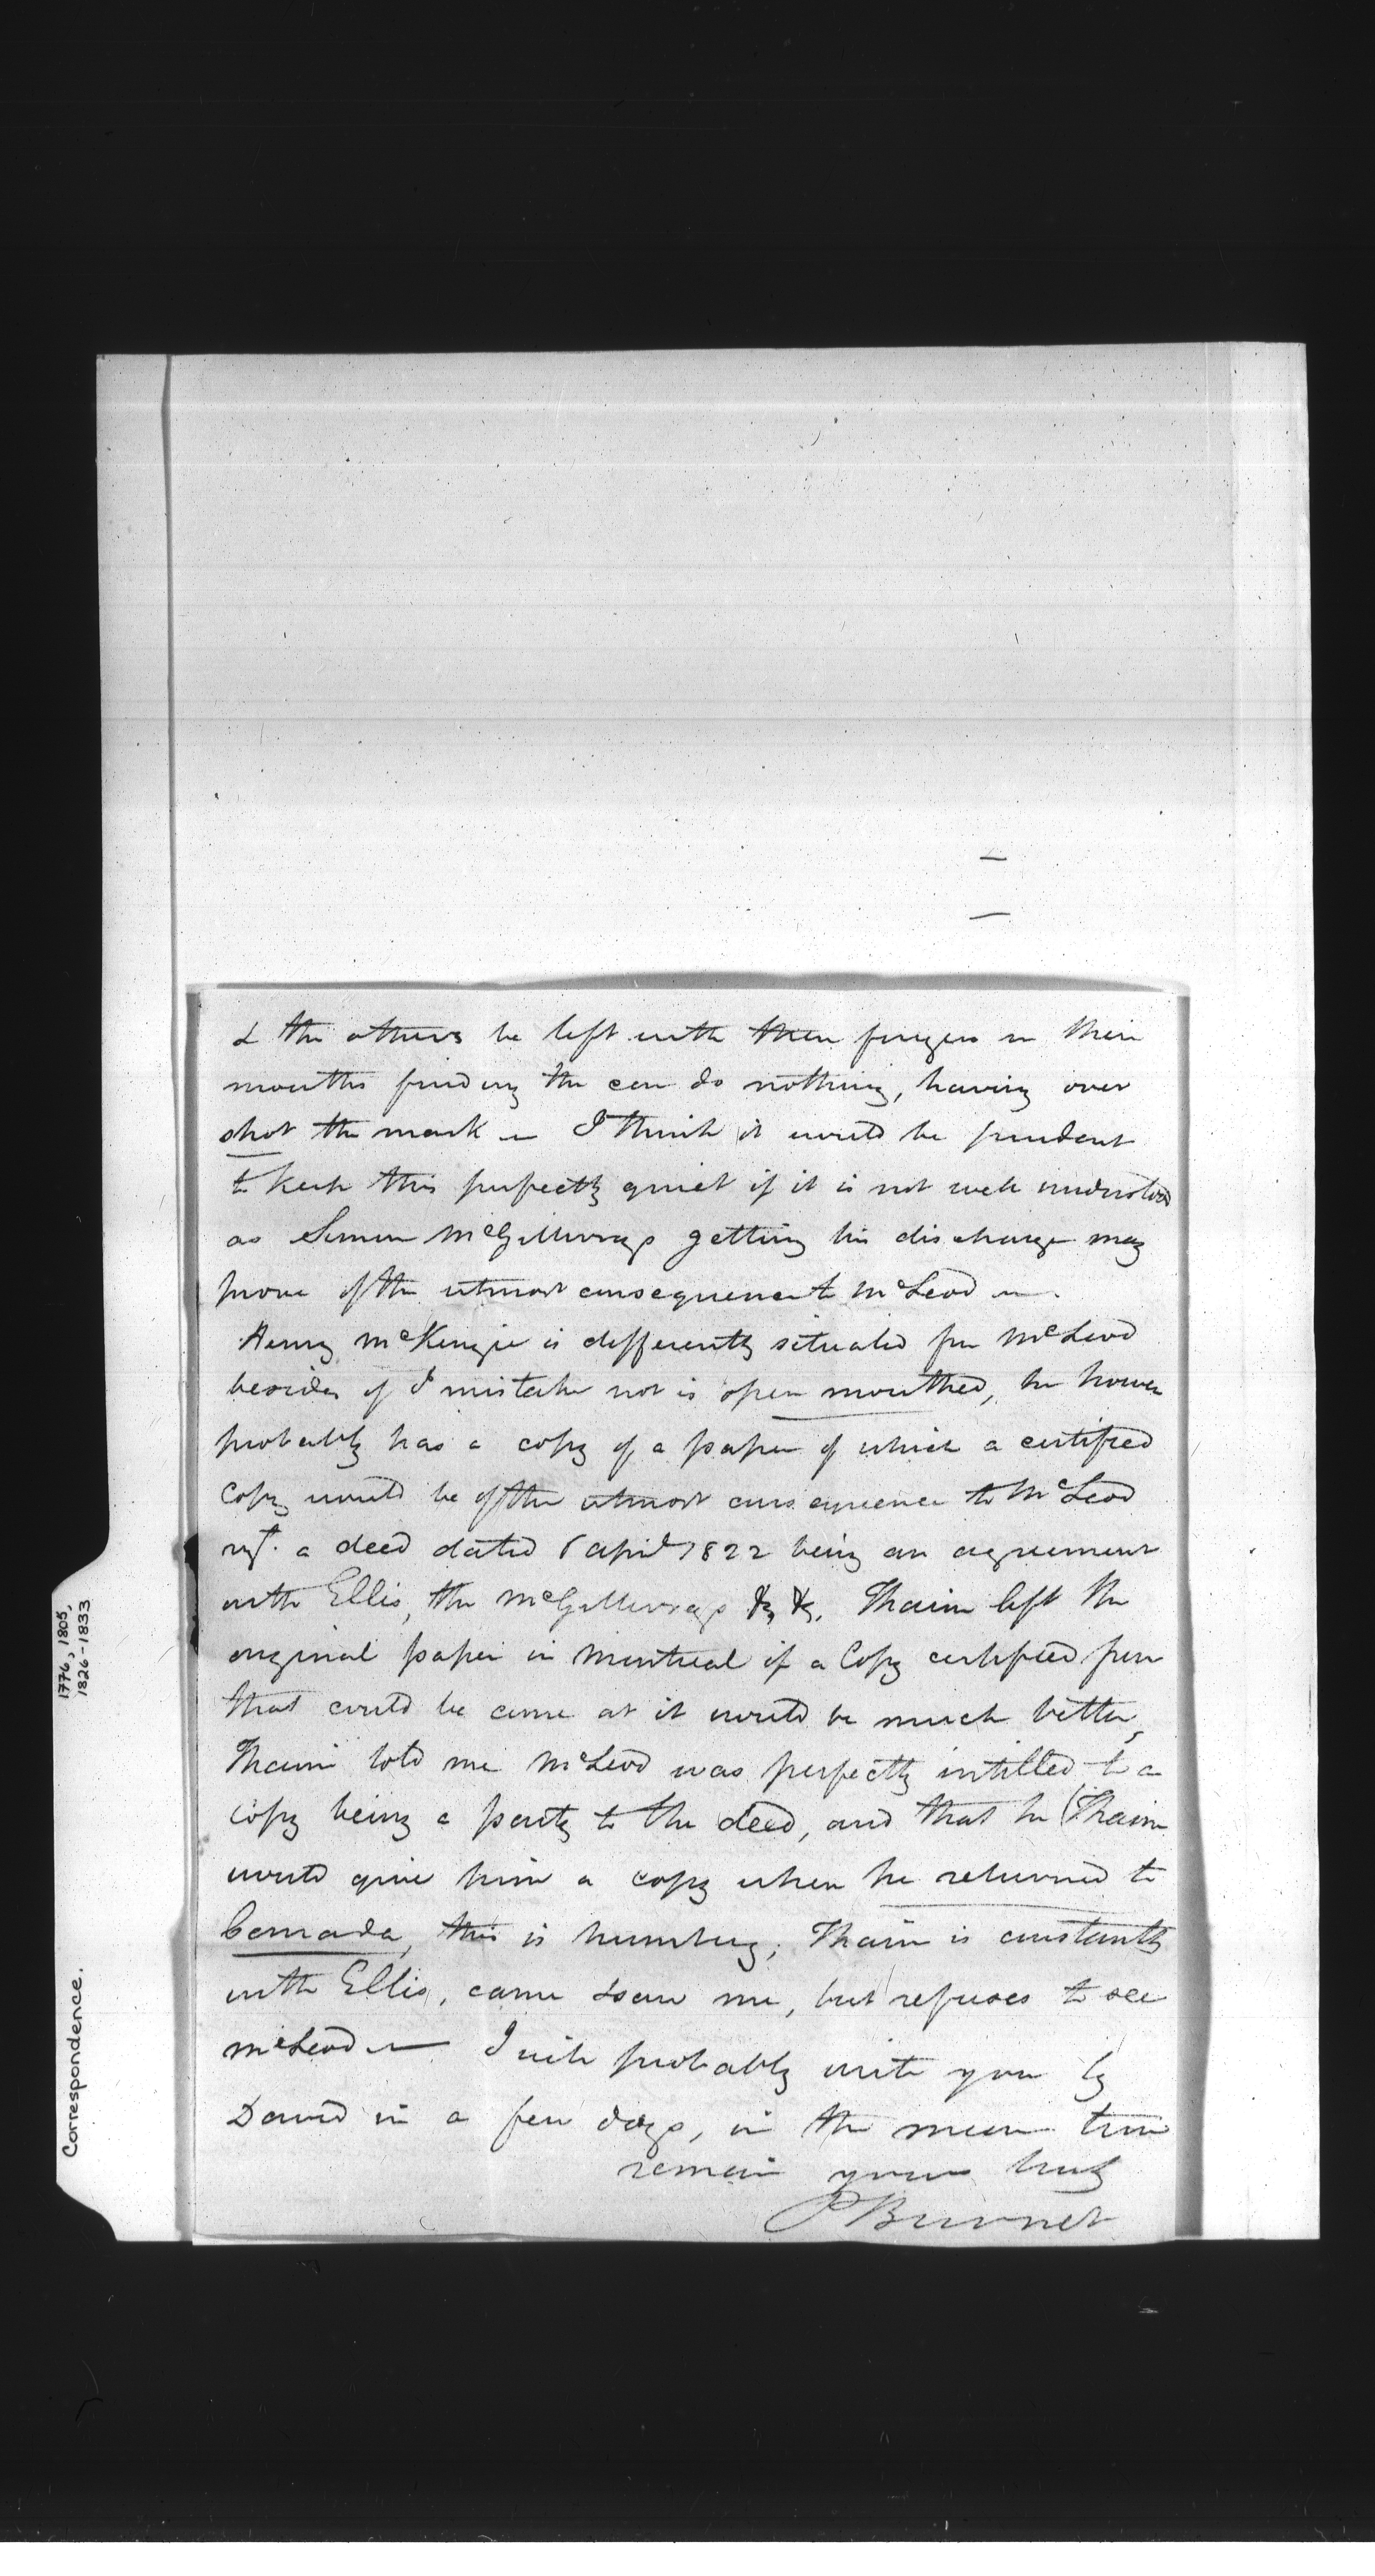 & the others be left with their fingers in their
mouths finding the can do nothing, having over
shot the mark — I think it would be prudent
to keep this perfectly quiet if it is not well understood
as Simon McGillivrays getting his discharge may
prove of the utmost consequence to McLeod —.
Henry McKenzie is differently situated fm McLeod
besides if I mistake not is open mouthed, he howev
probably has a copy of a paper of which a certified
copy would be of the utmost consequence to McLeod
a deed dated 6 april 1822 being an agreement
with Ellis, the McGillivrays &c &c. Thain left the
original paper in Montreal if a Copy certified from
that could be come at it would be much better,
Thain told me McLeod was perfectly intitled to a
copy being a party to the deed, and that he (Thain
would give him a copy when he returned to
Canada, this is humbug; Thain is constantly
with Ellis, came & saw me, but refuses to see
McLeod — I will probably write you by
David in a few days, in the mean time
remain yours truly
P Burnet
Correspondence.
1776, 1805,
1826-1833